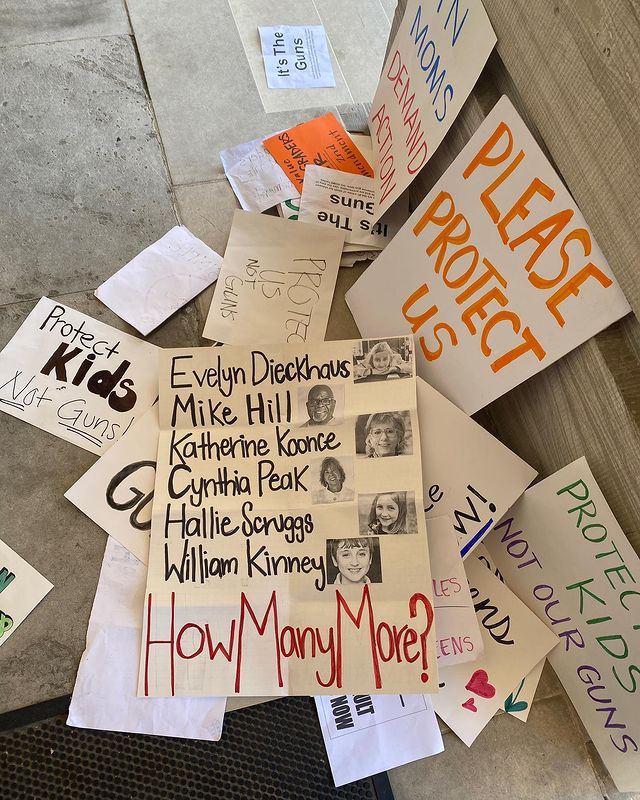 It's The
Guns
MOMS
DEMAND
ACTION
value
2nd
It's The
Guns
PLEASE
PROTECT
US
PROTEC
US
NOT
GUNS
Protect
Kids
Not Guns!
Evelyn Dieckhaus
Mike Hill
Katherine Koonce
Cynthia Peak
Hallie Scruggs
William Kinney
How Many More?
GU
W!
PROTEC
KIDS
NOT OUR
GUNS